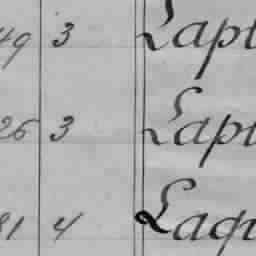 49 3 Lapt
26 3 Lapt
81 4 Laqu